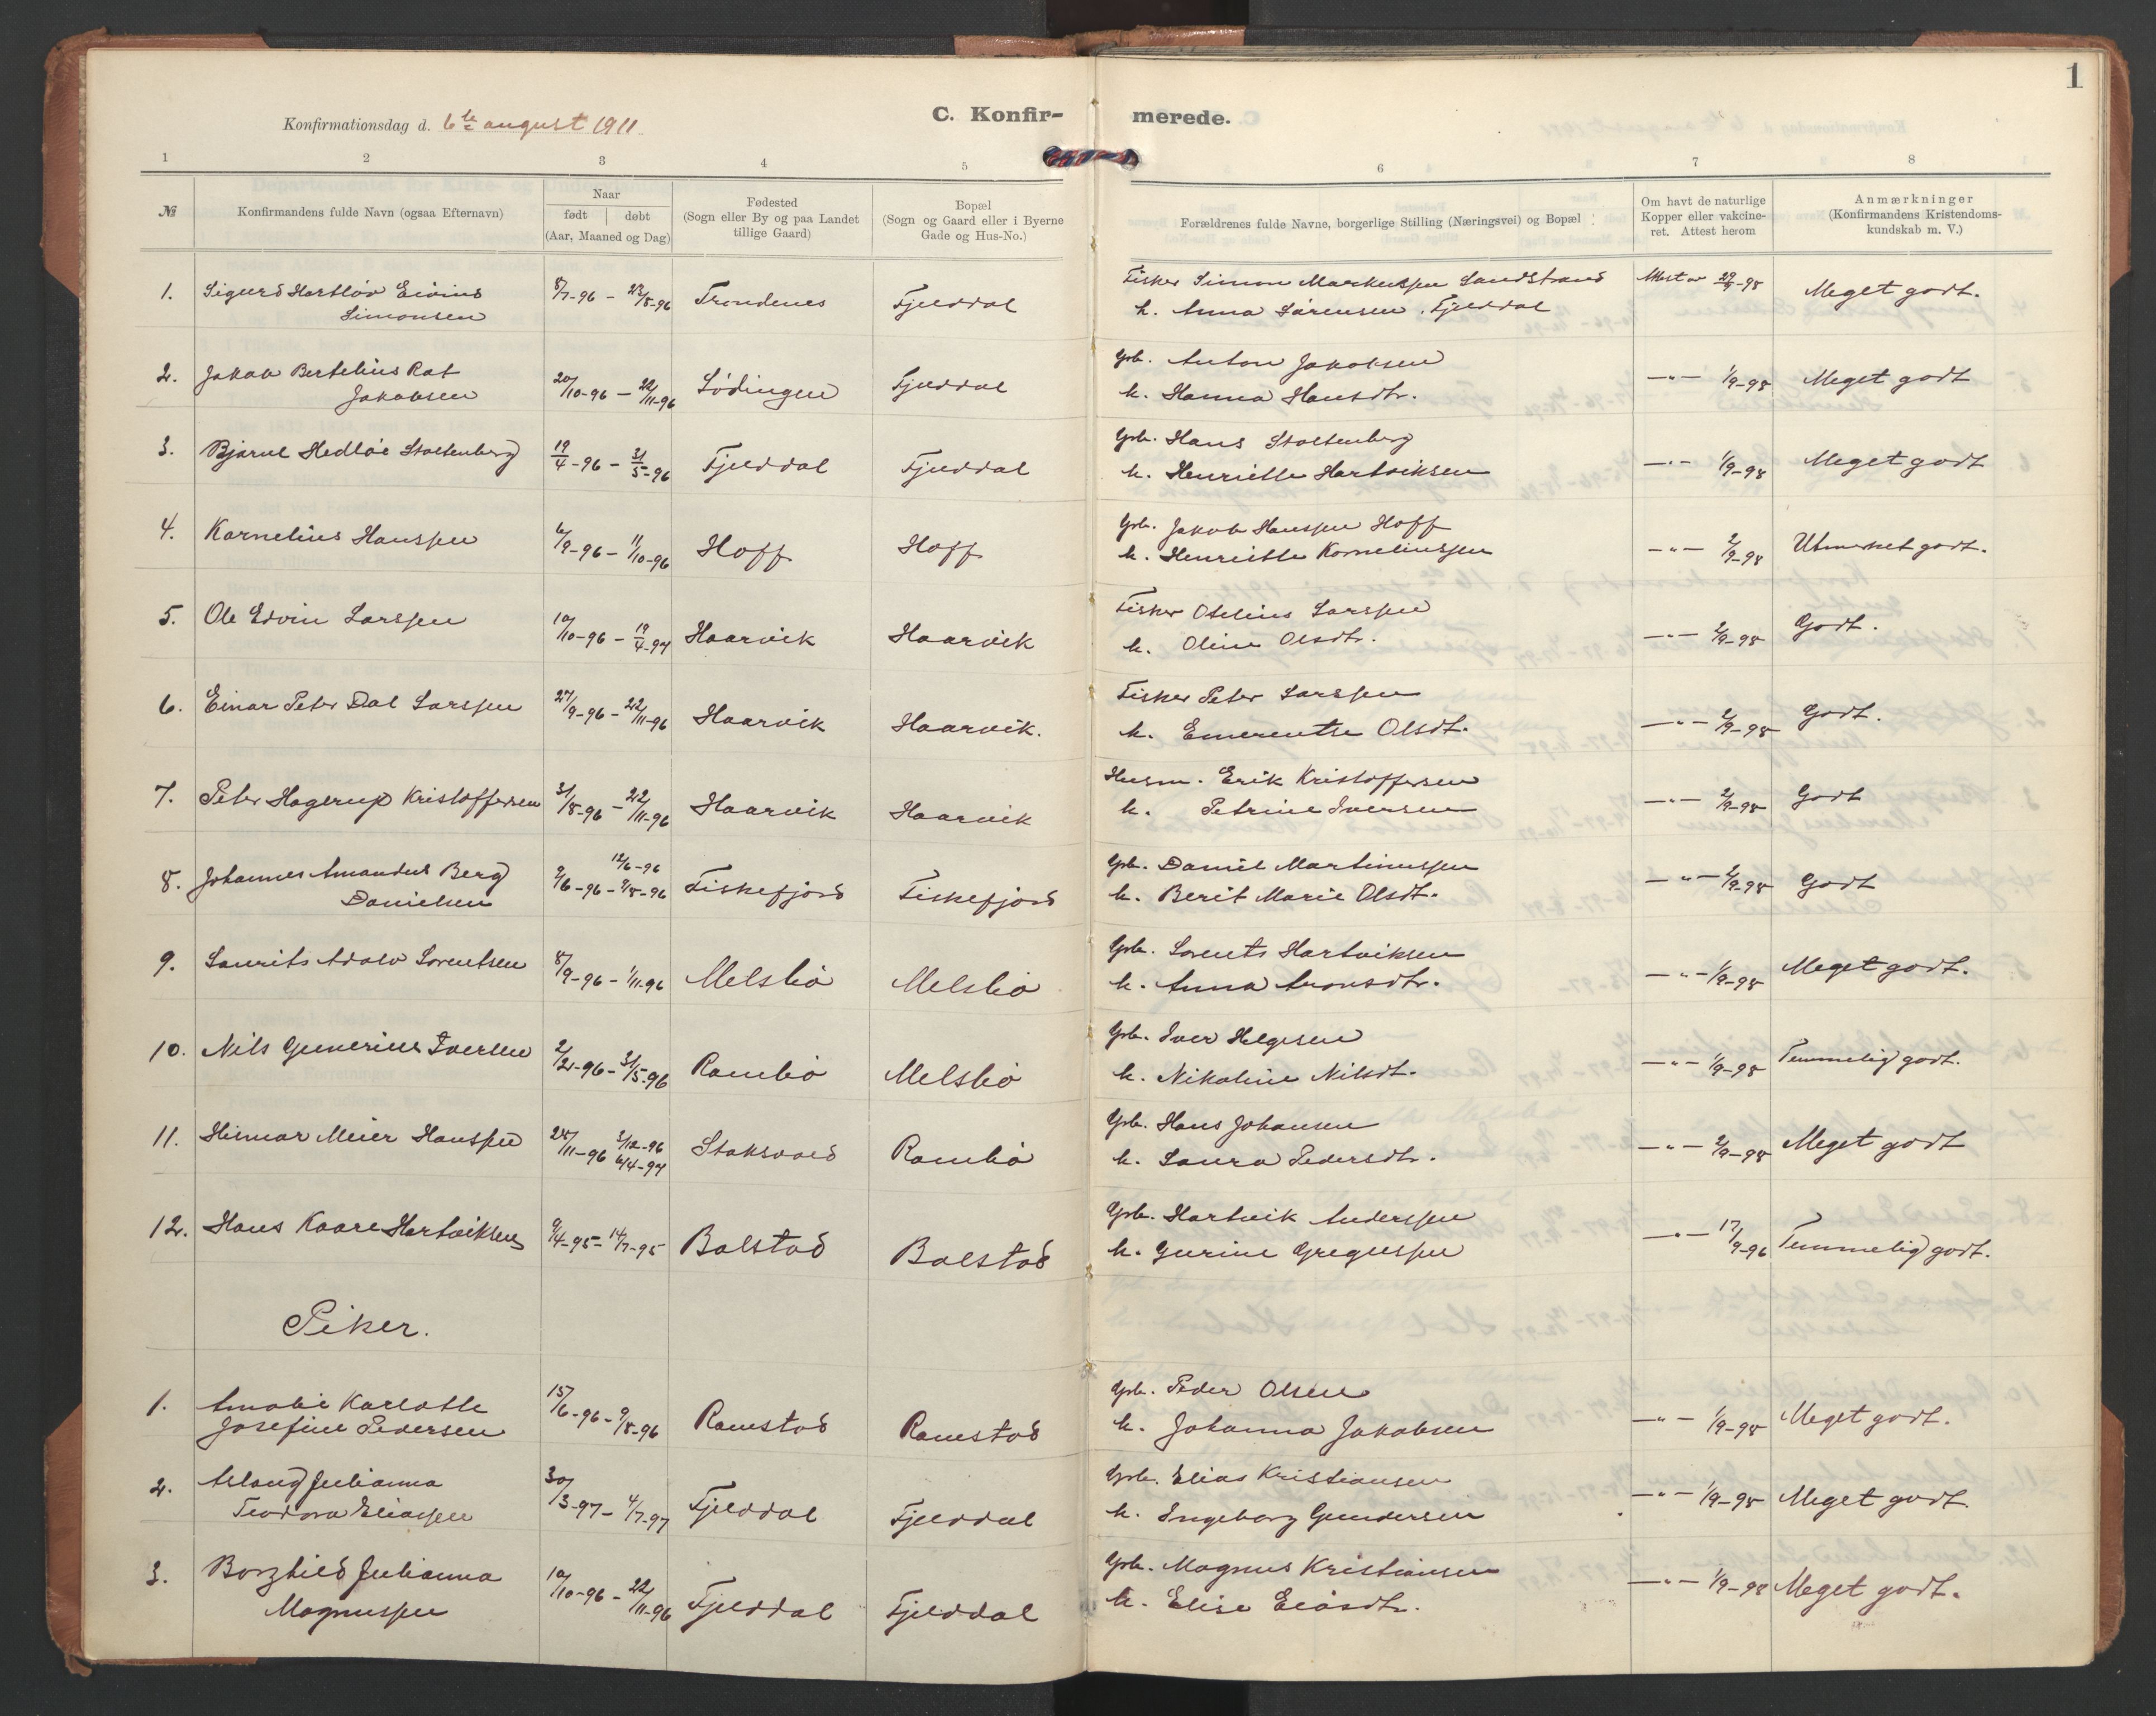 1
Konfirmationsdag d. 6te august 1911.
C. Konfir- merede.
1 2 3 4 5 6 7 8
№
Konfirmandens fulde Navn (ogsaa Efternavn)
Naar
født | døbt
(Aar, Maaned og Dag)
Fødested
(Sogn eller By og paa Landet
tillige Gaard)
Bopæl
(Sogn og Gaard eller i Byerne
Gade og Hus-No.)
Forældrenes fulde Navne, borgerlige Stilling (Næringsvei) og Bopæl
Om havt de naturlige
Kopper eller vakcine-
ret. Attest herom
Anmærkninger
(Konfirmandens Kristendoms-
kundskab m. V.)
1. Sigurd Hartløv Eivind 8/7-96 - 23/8-96 Trondenes Fjelddal Fisker Simon Markussen Sandstrand Attest av 29/8-98 Meget godt.
Simonsen h. Anna Sørensen, Fjelddal
2. Jakob Bertelius Rat 20/10-96 - 22/11-96 Lødingen Fjelddal Grb. Anton Jakobsen -"- 1/9-98 Meget godt
Jakobsen h. Hanna Hansdtr.
3. Bjarne Hedløv Stoltenberg 19/4-96 - 31/5-96 Fjelddal Fjelddal Grb. Hans Stoltenberg -"- 1/9-98 Meget godt
h. Henriette Hartviksen
4. Kornelius Hanssen 6/9-96 - 11/10-96 Hoff Hoff Grb. Jakob Hanssen Hoff -"- 2/9-98 Utmerket godt.
h. Henriette Korneliussen
5. Ole Edvin Larssen 10/10-96 - 19/4-97 Haarvik Haarvik Fisker Otelius Larssen -"- 2/9-98 Godt.
h. Oline Olsdtr.
6. Einar Peter Dal Larssen 27/9-96 - 22/11-96 Haarvik Haarvik. Fisker Peter Larssen -"- 2/9-98 Godt.
h. Emerentse Olsdt.
7. Peter Hagerup Kristoffersen 31/8-96 - 22/11-96 Haarvik Haarvik Husm. Erik Kristoffersen -"- 2/9-98 Godt
h. Petrine Iversen
8. Johannes Amandus Berg 9/6-96 - 12/6-96 9/8-96 Fiskefjord Fiskefjord Grb. Daniel Martinussen -"- 2/9-98 Godt
Danielsen h. Berit Marie Olsdt.
9. Laurits Adolv Lorentsen 8/9-96 - 1/11-96 Melsbø Melsbø Grb. Lorents Hartviksen -"- 1/9-98 Meget godt.
h. Anna Aronsdtr.
10. Nils Gunerius Iversen 2/2-96 - 31/5-96 Rambø Melsbø Grb. Iver Helgesen -"- 1/9-98 Temmelig godt.
h. Nikoline Nilsdt.
11. Hilmar Meier Hanssen 24/11-96 3/12-96 6/4-97 Staksvold Rambø Grb. Hans Johansen -"- 2/9-98 Meget godt
h. Laura Pedersdtr.
12. Hans Kaare Hartviksen 9/4-95 - 14/7-95 Balstad Balstad Grb. Hartvik Anderssen -"- 17/9-96 Temmelig godt.
h. Gurine Gregussen
Piker.
1. Amalie Karlotte 15/6-96 - 9/8-96 Ramstad Ramstad Grb. Peder Olsen -"- 1/9-98 Meget godt.
Josefine Pedersen h. Johanna Jakobsen
2. Aslaug Julianna 30/3-97 - 4/7-97 Fjelddal Fjelddal Grb. Elias Kristiansen -"- 1/9-98 Meget godt.
Teodora Eliassen h. Ingeborg Gundersen
3. Borghild Julianna 10/10-96 - 22/11-96 Fjelddal Fjelddal Grb. Magnus Kristiansen -"- 1/9-98 Meget godt.
Magnussen h. Elise